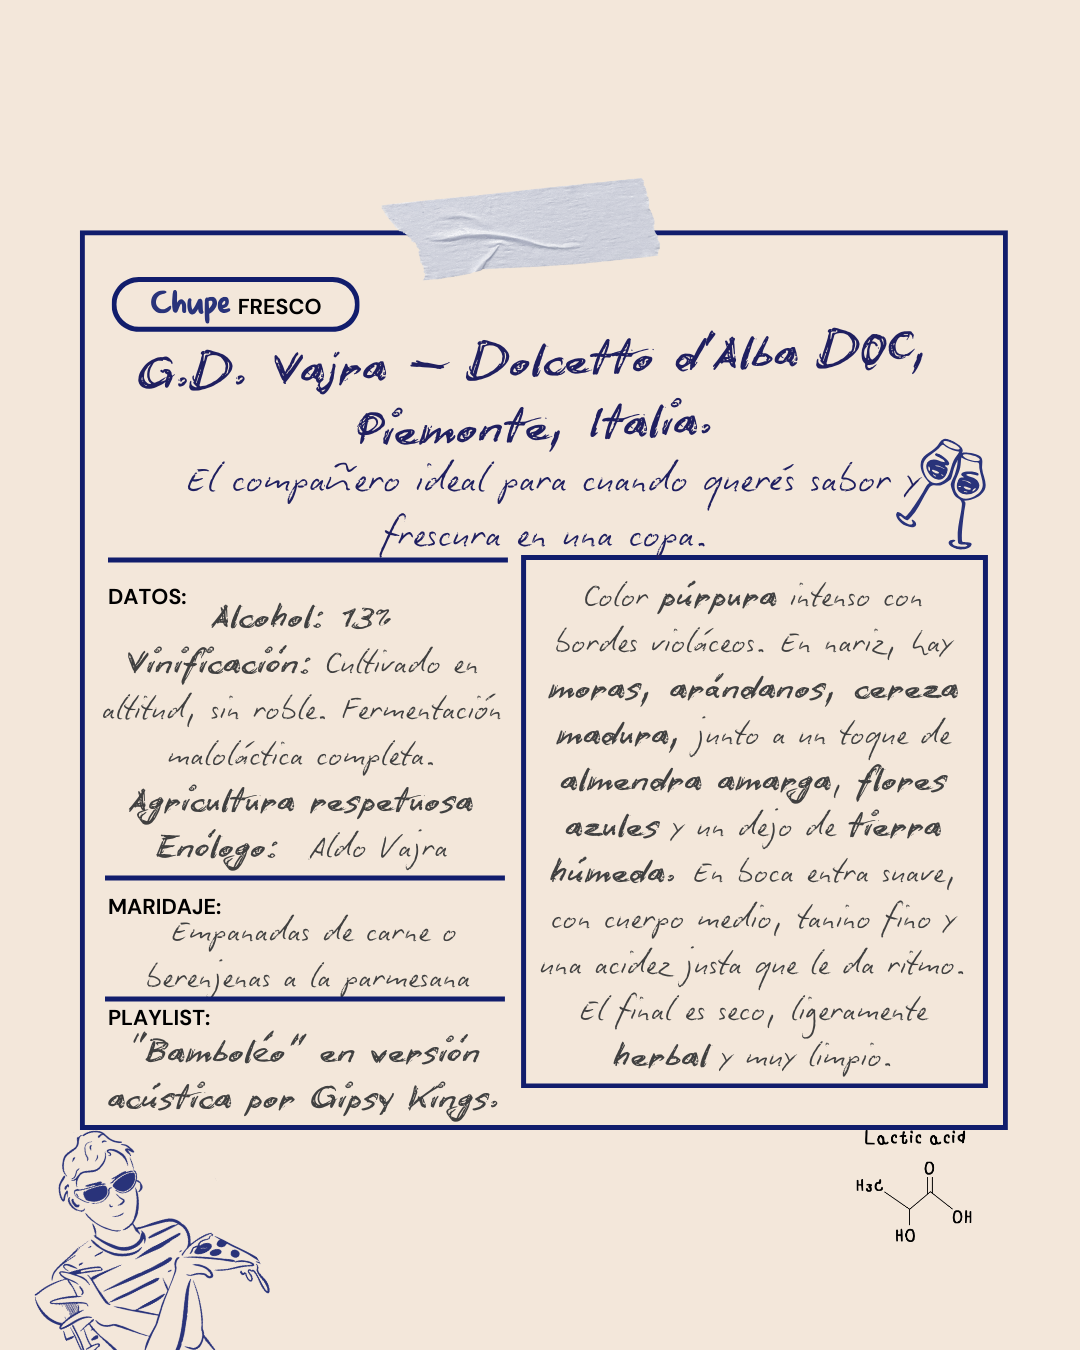 Chupe FRESCO
G.D. Vajra – Dolcetto d'Alba DOC,
Piemonte, Italia.
El compañero ideal para cuando querés sabor y
frescura en una copa.
DATOS:
Alcohol: 13%
Vinificación: Cultivado en
altitud, sin roble. Fermentación
maloláctica completa.
Agricultura respetuosa
Enólogo: Aldo Vajra
MARIDAJE:
Empanadas de carne o
berenjenas a la parmesana
PLAYLIST:
"Bamboléo" en versión
acústica por Gipsy Kings.
Color púrpura intenso con
bordes violáceos. En nariz, hay
moras, arándanos, cereza
madura, junto a un toque de
almendra amarga, flores
azules y un dejo de tierra
húmeda. En boca entra suave,
con cuerpo medio, tanino fino y
una acidez justa que le da ritmo.
El final es seco, ligeramente
herbal y muy limpio.
Lactic acid
O
H₃C
OH
HO